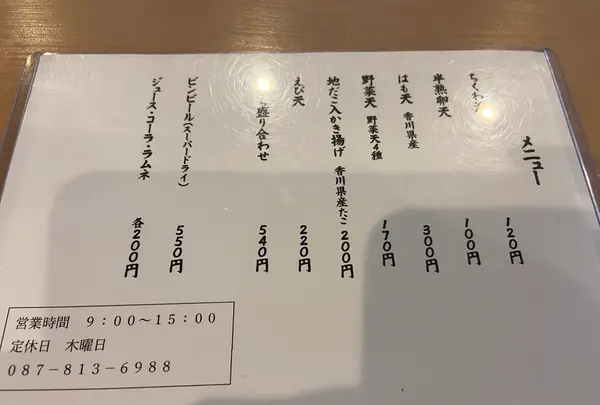 メニュー
ちくわ天 120円
半熟卵天 100円
はも天 香川県産 300円
野菜天 野菜天4種 170円
地だこ入かき揚げ 香川県産たこ 200円
えび天 220円
盛り合わせ 540円
ビンビール(スーパードライ) 550円
ジュース・コーラ・ラムネ 各200円
営業時間 9:00～15:00
定休日 木曜日
087-813-6988